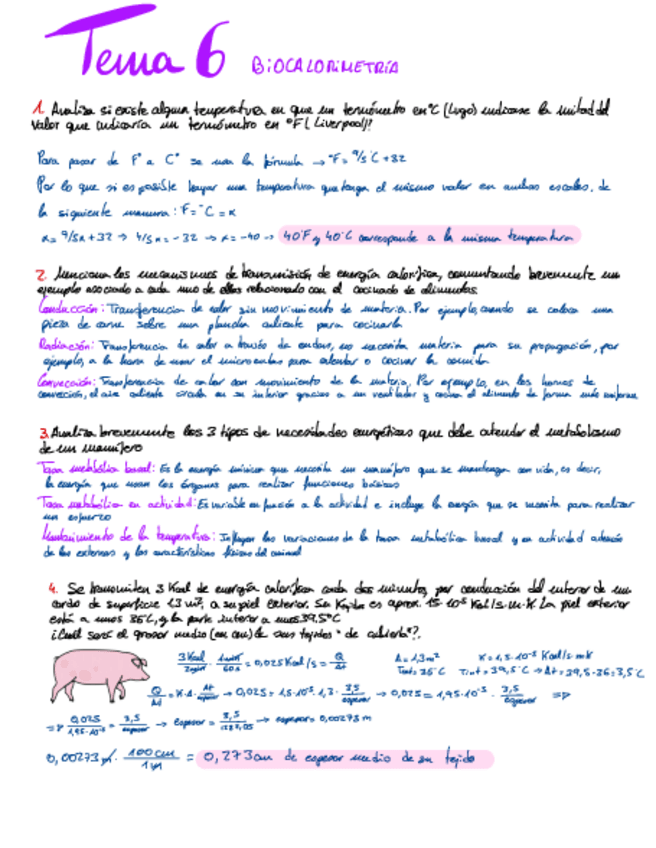 Tema 6 BIOCALORIMETRÍA
1. Analiza si existe alguna temperatura en que un termómetro en °C (Lugo) indicase la mitad del
valor que indicaría un termómetro en °F (Liverpool)?
Para pasar de F° a C° se usa la fórmula → °F = 9/5 °C + 32
Por lo que si es posible hayar una temperatura que tenga el mismo valor en ambas escalas, de
la siguiente manera: °F = °C = x
x = 9/5x + 32 → 4/5x = -32 → x = -40 → 40°F y 40°C corresponde a la misma temperatura
2. Menciona los mecanismos de transmisión de energía calorífica, comentando brevemente un
ejemplo asociado a cada uno de ellos relacionado con el cocinado de alimentos
Conducción: Transferencia de calor sin movimiento de materia. Por ejemplo, cuando se coloca una
pieza de carne sobre una plancha caliente para cocinarla
Radiación: Transferencia de calor a través de ondas, no necesita materia para su propagación, por
ejemplo, a la hora de usar el microondas para calentar o cocinar la comida
Convección: Transferencia de calor con movimiento de la materia. Por ejemplo, en los hornos de
convección, el aire caliente circula en su interior gracias a un ventilador y cocina el alimento de forma más uniforme
3. Analiza brevemente los 3 tipos de necesidades energéticas que debe atender el metabolismo
de un mamífero
Tasa metabólica basal: Es la energía mínima que necesita un mamífero que se mantenga con vida, es decir,
la energía que usan los órganos para realizar funciones básicas
Tasa metabólica en actividad: Es variable en función a la actividad e incluye la energía que se necesita para realizar
un esfuerzo
Mantenimiento de la temperatura: Influyen las variaciones de la tasa metabólica basal y en actividad además
de las externas y las características físicas del animal
4. Se transmiten 3 Kcal de energía calorífica cada dos minutos, por conducción del interior de un
cerdo de superficie 1,3 m², a su piel exterior. Su K es aprox. 1,5·10⁻⁵ Kcal/s·m·K. La piel exterior
está a unos 36°C, y la parte interior a unos 39,5°C
¿Cuál será el grosor medio (en cm) de sus tejidos "de cubierta"?.
3 Kcal/2 min · 1 min/60 s = 0,025 Kcal/s = Q/Δt
A = 1,3 m² K = 1,5·10⁻⁵ Kcal/s·m·K
Text = 36°C Tint = 39,5°C → Δt = 39,5-36 = 3,5°C
Q/Δt = K·A · Δt/espesor → 0,025 = 1,5·10⁻⁵ · 1,3 · 3,5/espesor → 0,025 = 1,95·10⁻⁵ · 3,5/espesor ⇒
⇒ 0,025/1,95·10⁻⁵ = 3,5/espesor → espesor = 3,5/1282,05 → espesor = 0,00273 m
0,00273 m · 100 cm/1 m = 0,273 cm de espesor medio de su tejido